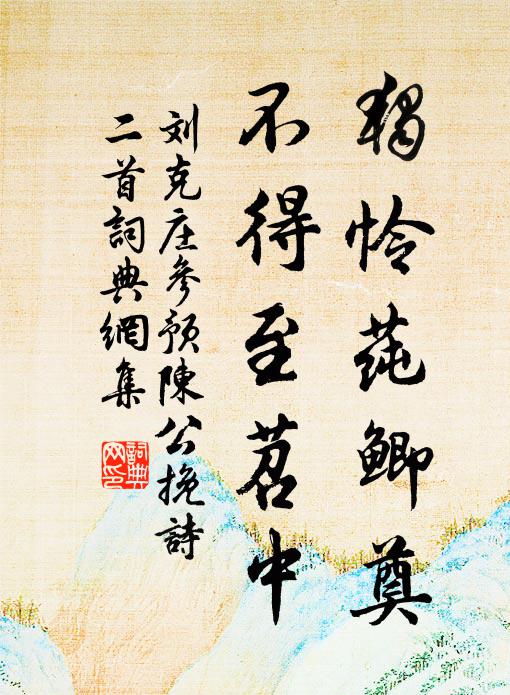 獨怜莼鲫奠
不得至苕中
刘克庄參预陳公挽詩
二首詞典網集
詞典网印